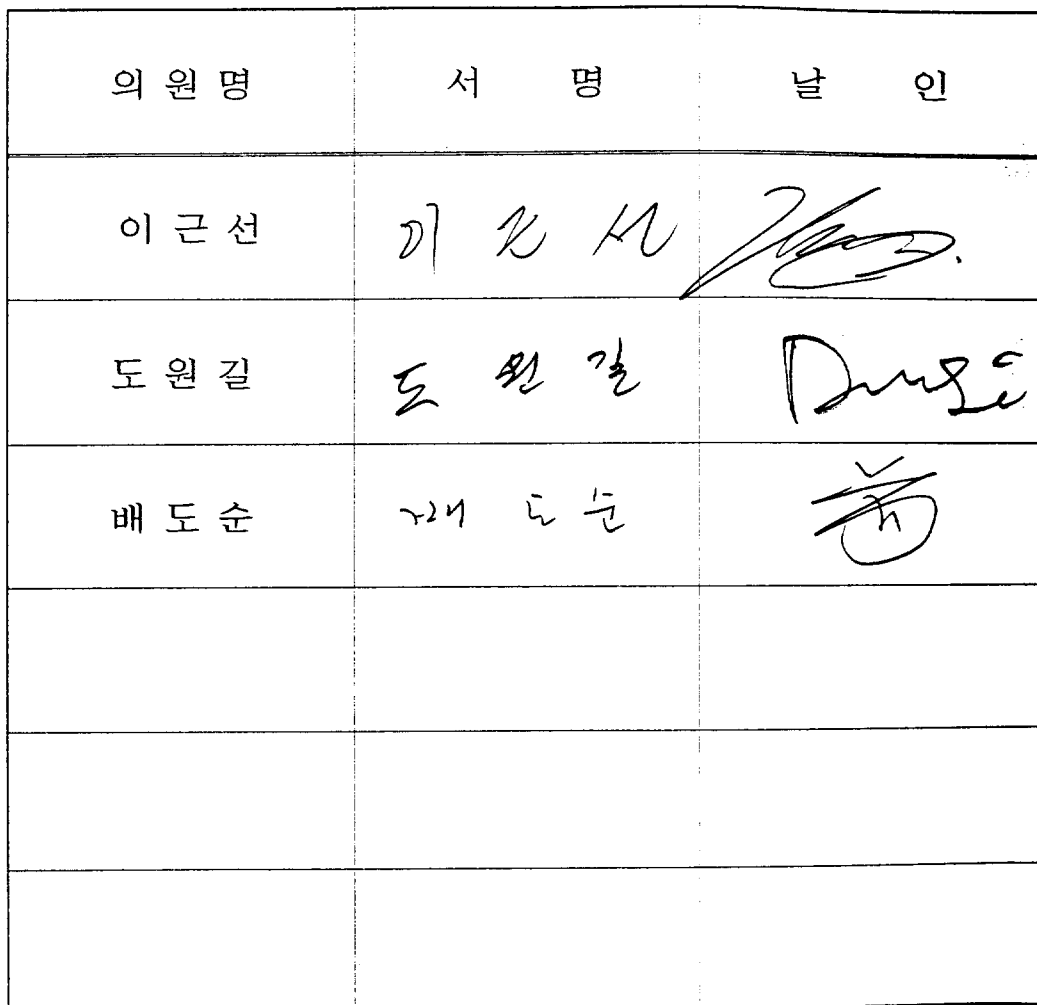 의원명 서 명 날 인
이근선 이 근 선
도원길 도 원 길
배도순 배 도 순